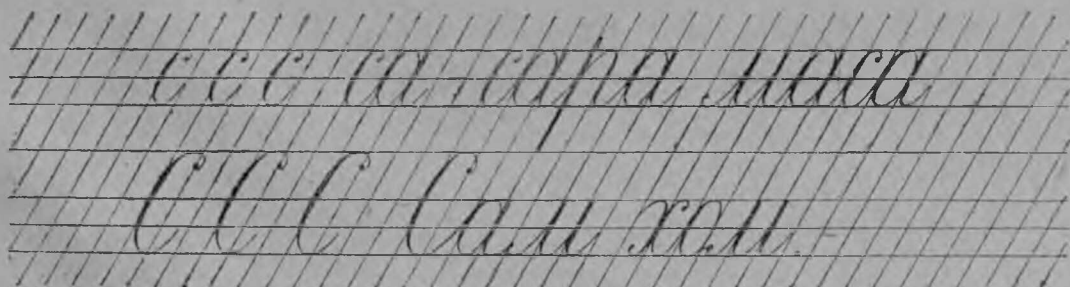 с с с са сара маса
С С С Сам хом